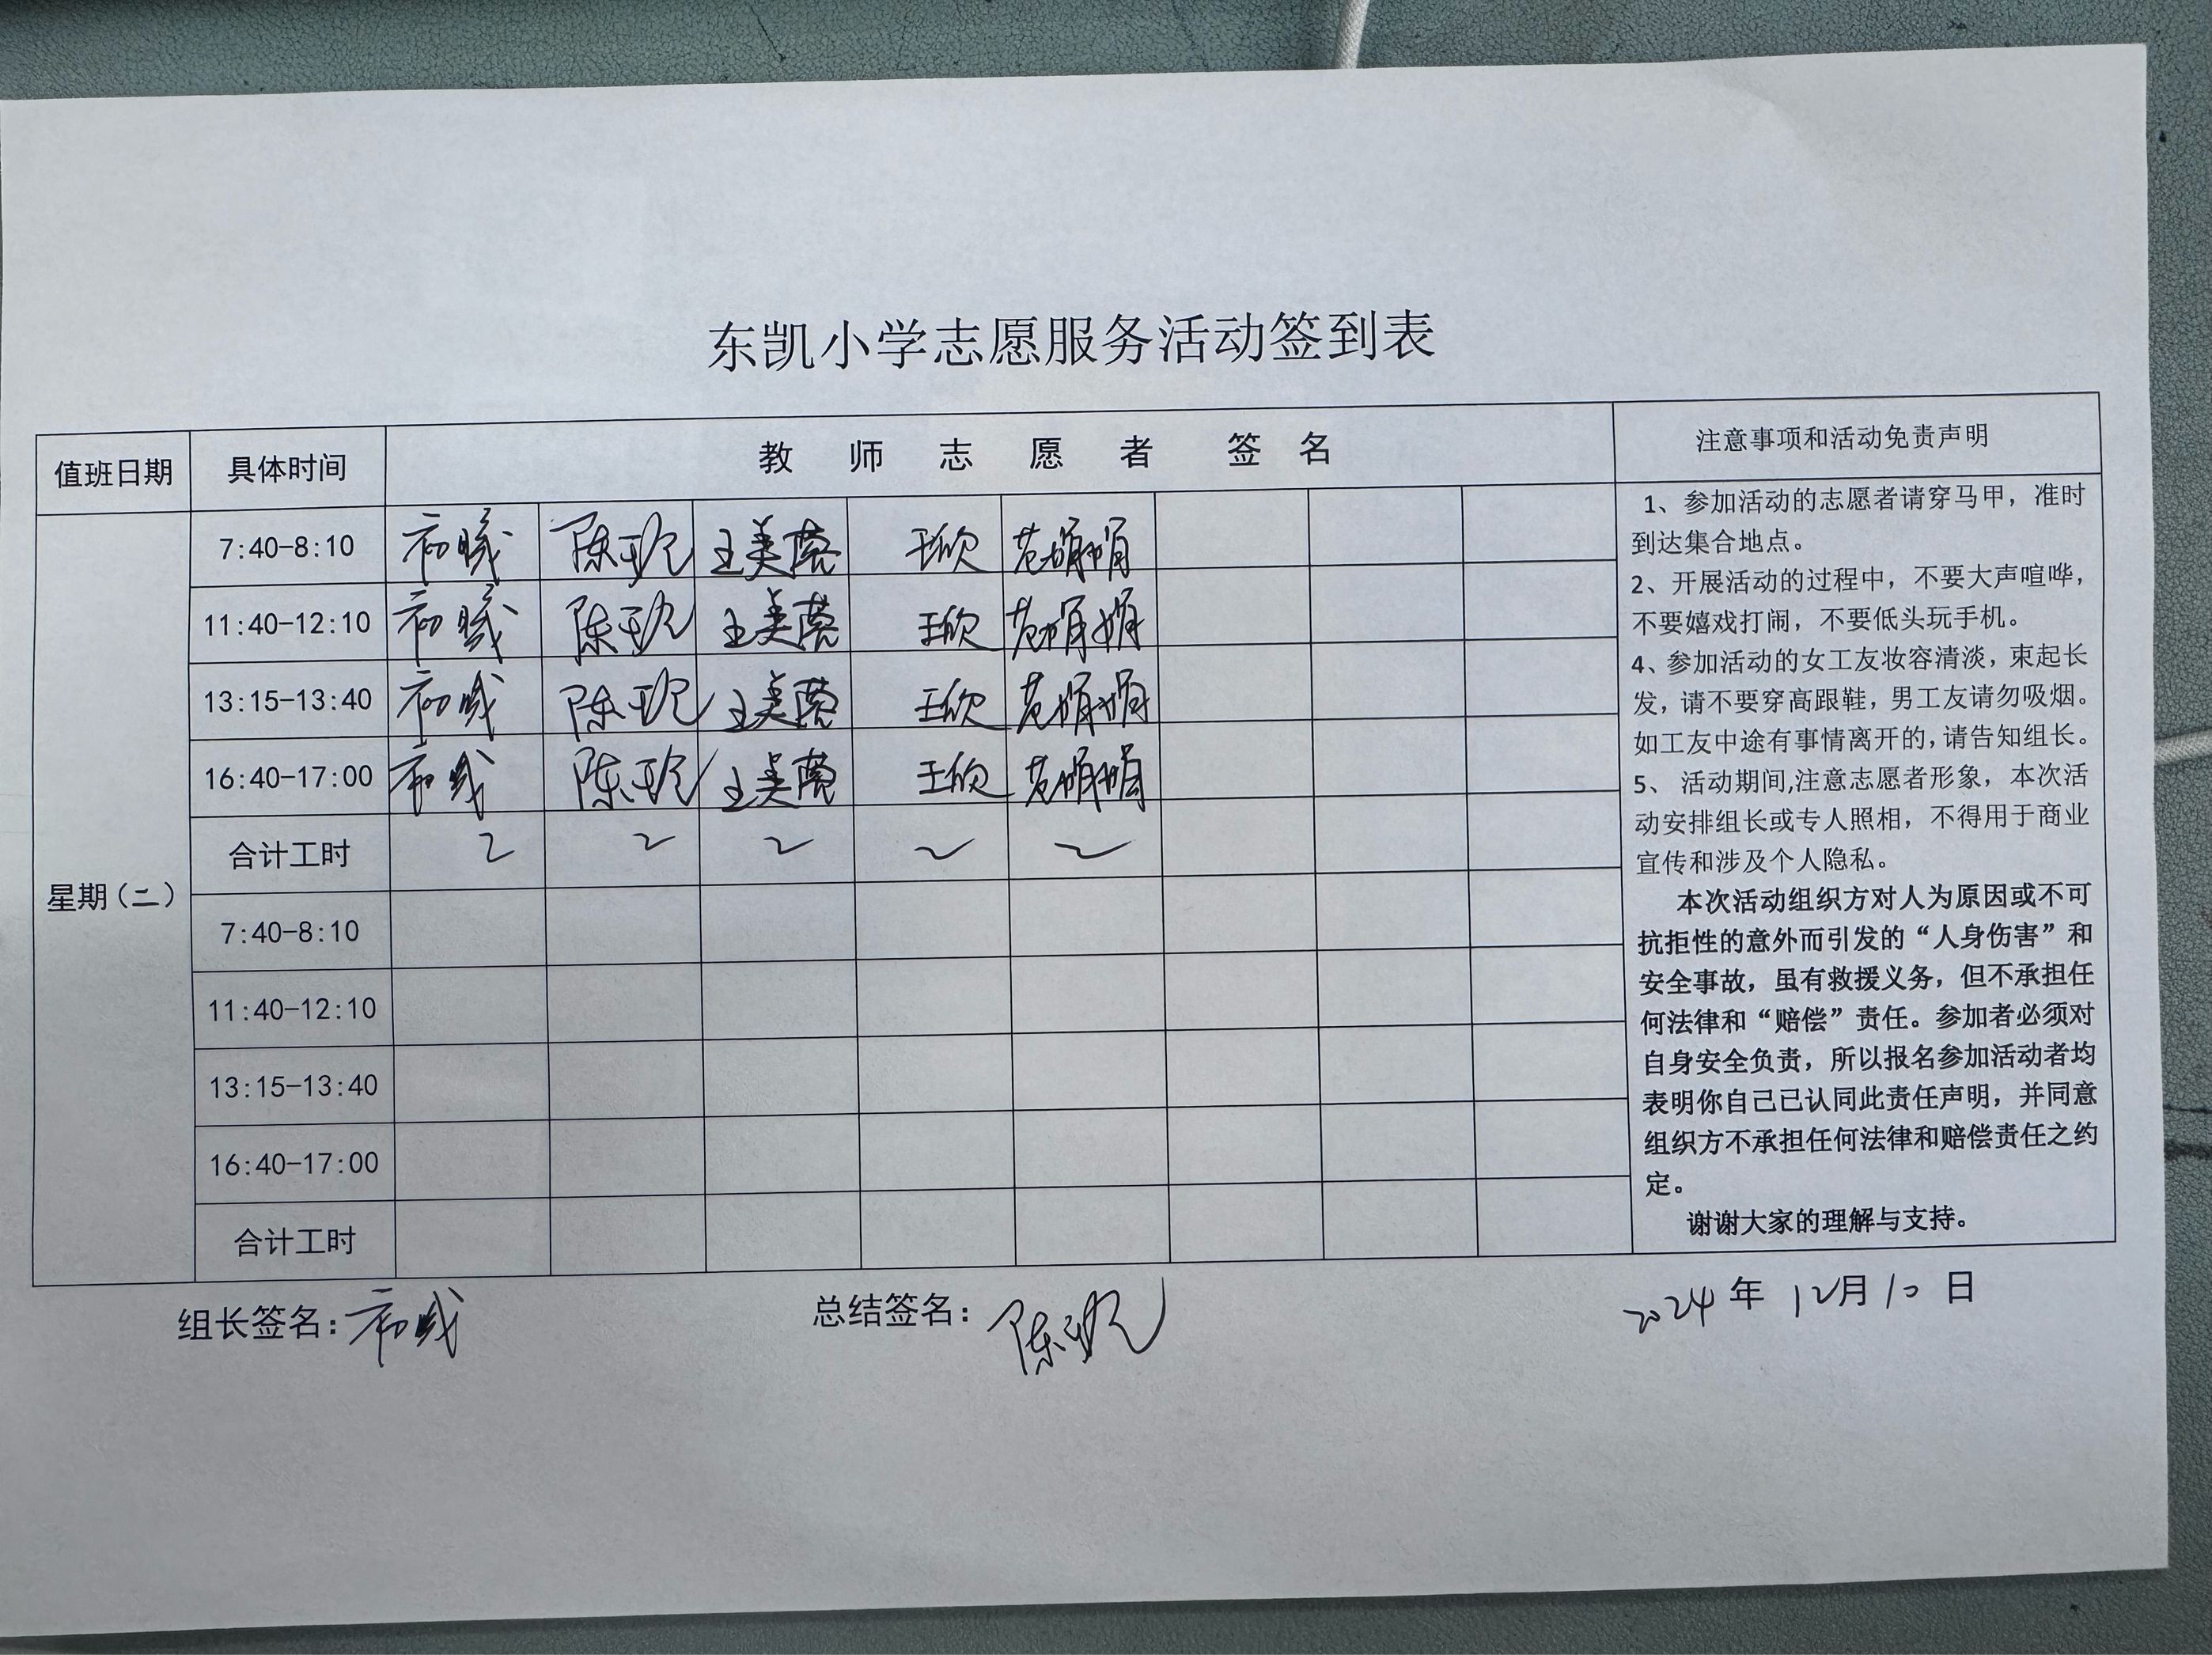 东凯小学志愿服务活动签到表
值班日期 具体时间 教师志愿者 签名 注意事项和活动免责声明
星期(二)
7:40-8:10 王美 王欣 娟娟
11:40-12:10 王美 王欣 娟娟
13:15-13:40 王美 王欣 娟娟
16:40-17:00 王美 王欣 娟娟
合计工时 2 2 2 2 2
7:40-8:10
11:40-12:10
13:15-13:40
16:40-17:00
合计工时
1、参加活动的志愿者请穿马甲，准时
到达集合地点。
2、开展活动的过程中，不要大声喧哗，
不要嬉戏打闹，不要低头玩手机。
4、参加活动的女工友妆容清淡，束起长
发，请不要穿高跟鞋，男工友请勿吸烟。
如工友中途有事情离开的，请告知组长。
5、 活动期间,注意志愿者形象，本次活
动安排组长或专人照相，不得用于商业
宣传和涉及个人隐私。
本次活动组织方对人为原因或不可
抗拒性的意外而引发的“人身伤害”和
安全事故，虽有救援义务，但不承担任
何法律和“赔偿”责任。参加者必须对
自身安全负责，所以报名参加活动者均
表明你自己已认同此责任声明，并同意
组织方不承担任何法律和赔偿责任之约
定。
谢谢大家的理解与支持。
组长签名： 总结签名： 陈 2024年12月10日